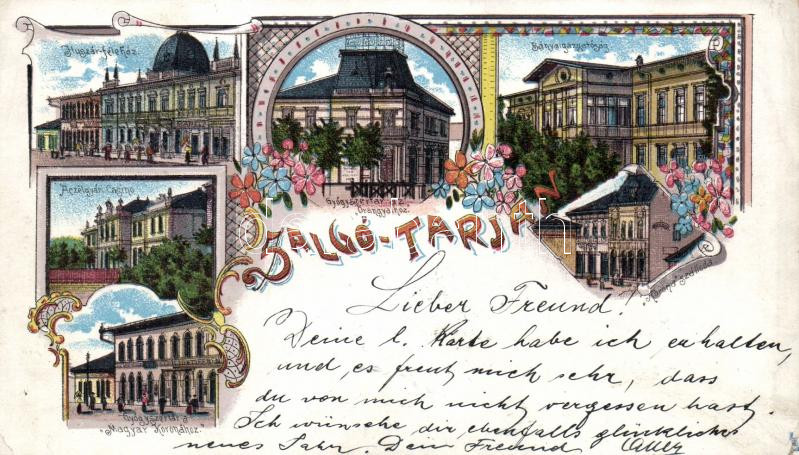 Huszár-féle ház
Bányaigazgatóság
Aczélgyári Casino
Gyógyszertár az
"Őrangyalhoz."
SALGÓ-TARJÁN
Gyógyszertár a
"Magyar Koronához."
Lieber Freund!
Deine l. Karte habe ich erhalten,
und es freut mich sehr, dass
du von mich nicht vergessen hast.
Ich wünsche dir ebenfalls glückliches
neues Jahr. Dein Freund